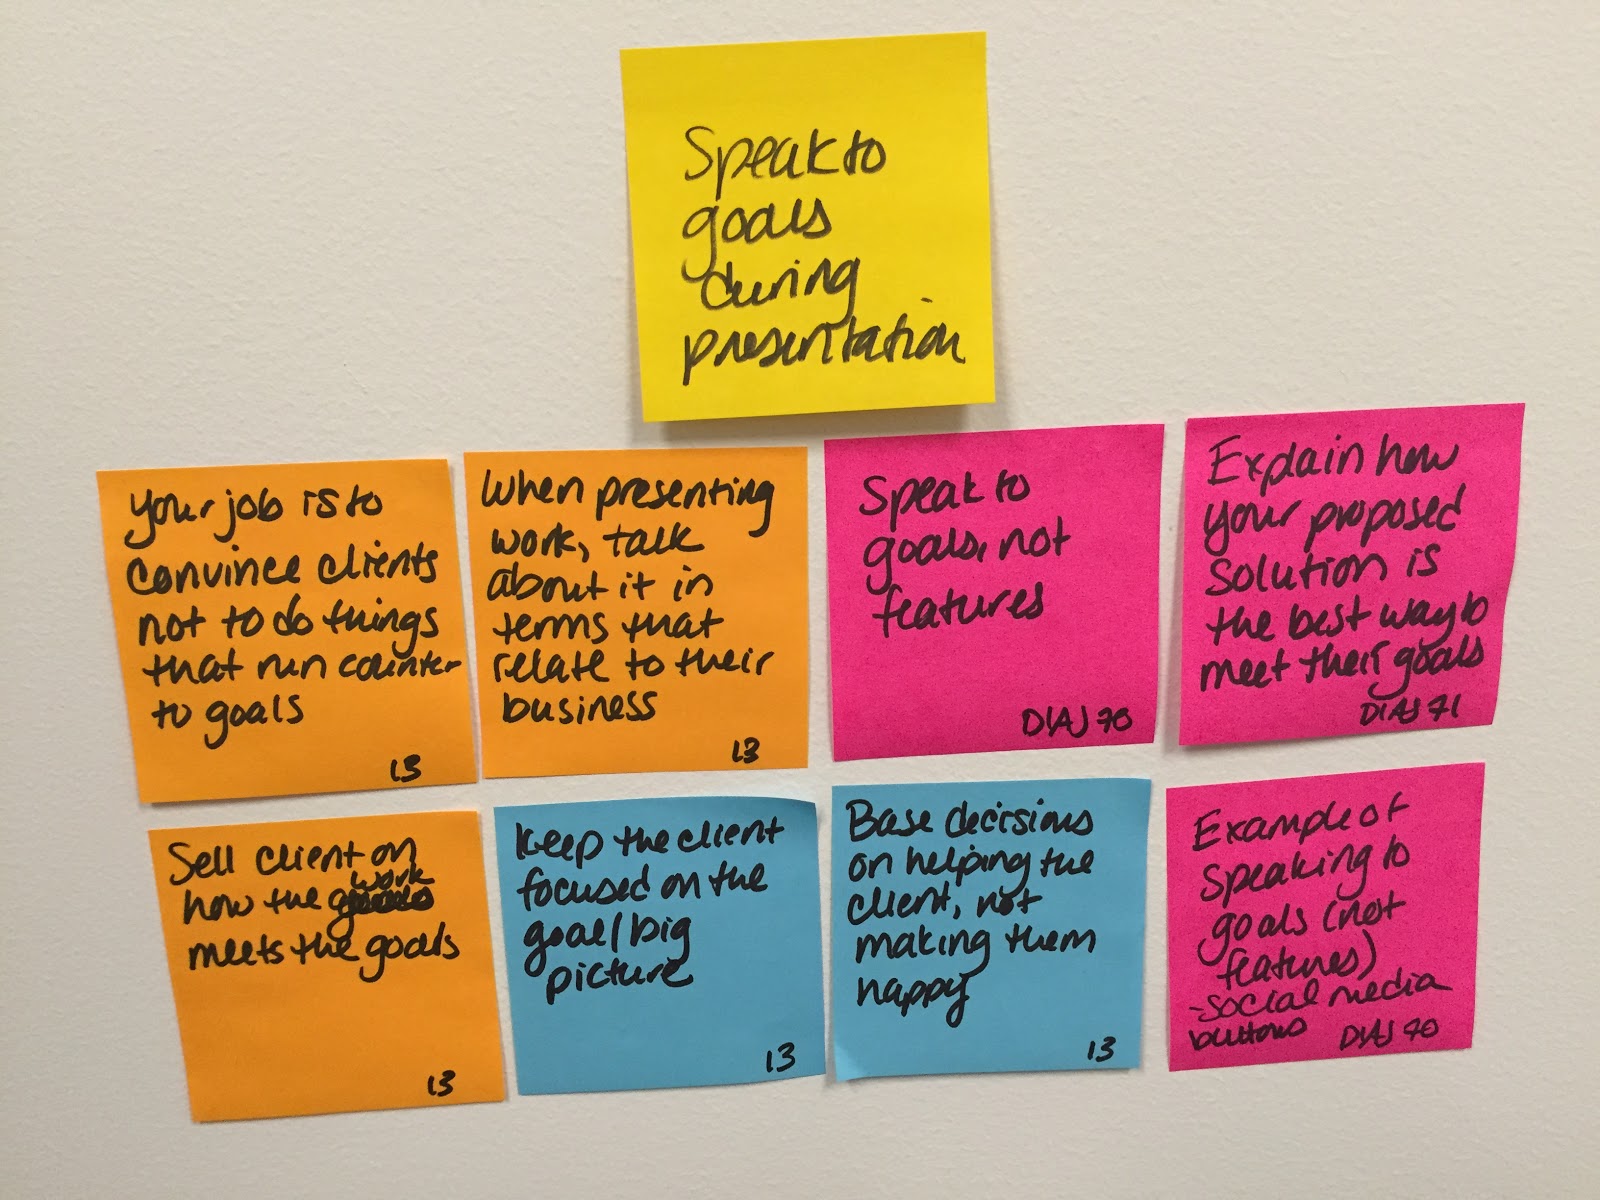 Speak to
goals
during
presentation
Your job is to
convince clients
not to do things
that run counter
to goals
13
When presenting
work, talk
about it in
terms that
relate to their
business
13
Speak to
goals, not
features
DIAJ 70
Explain how
your proposed
solution is
the best way to
meet their goals
DIAJ 71
Sell client on
how the work
meets the goals
13
Keep the client
focused on the
goal/big
picture
13
Base decisions
on helping the
client, not
making them
happy
13
Example of
speaking to
goals (not
features)
-social media
buttons DIAJ 70